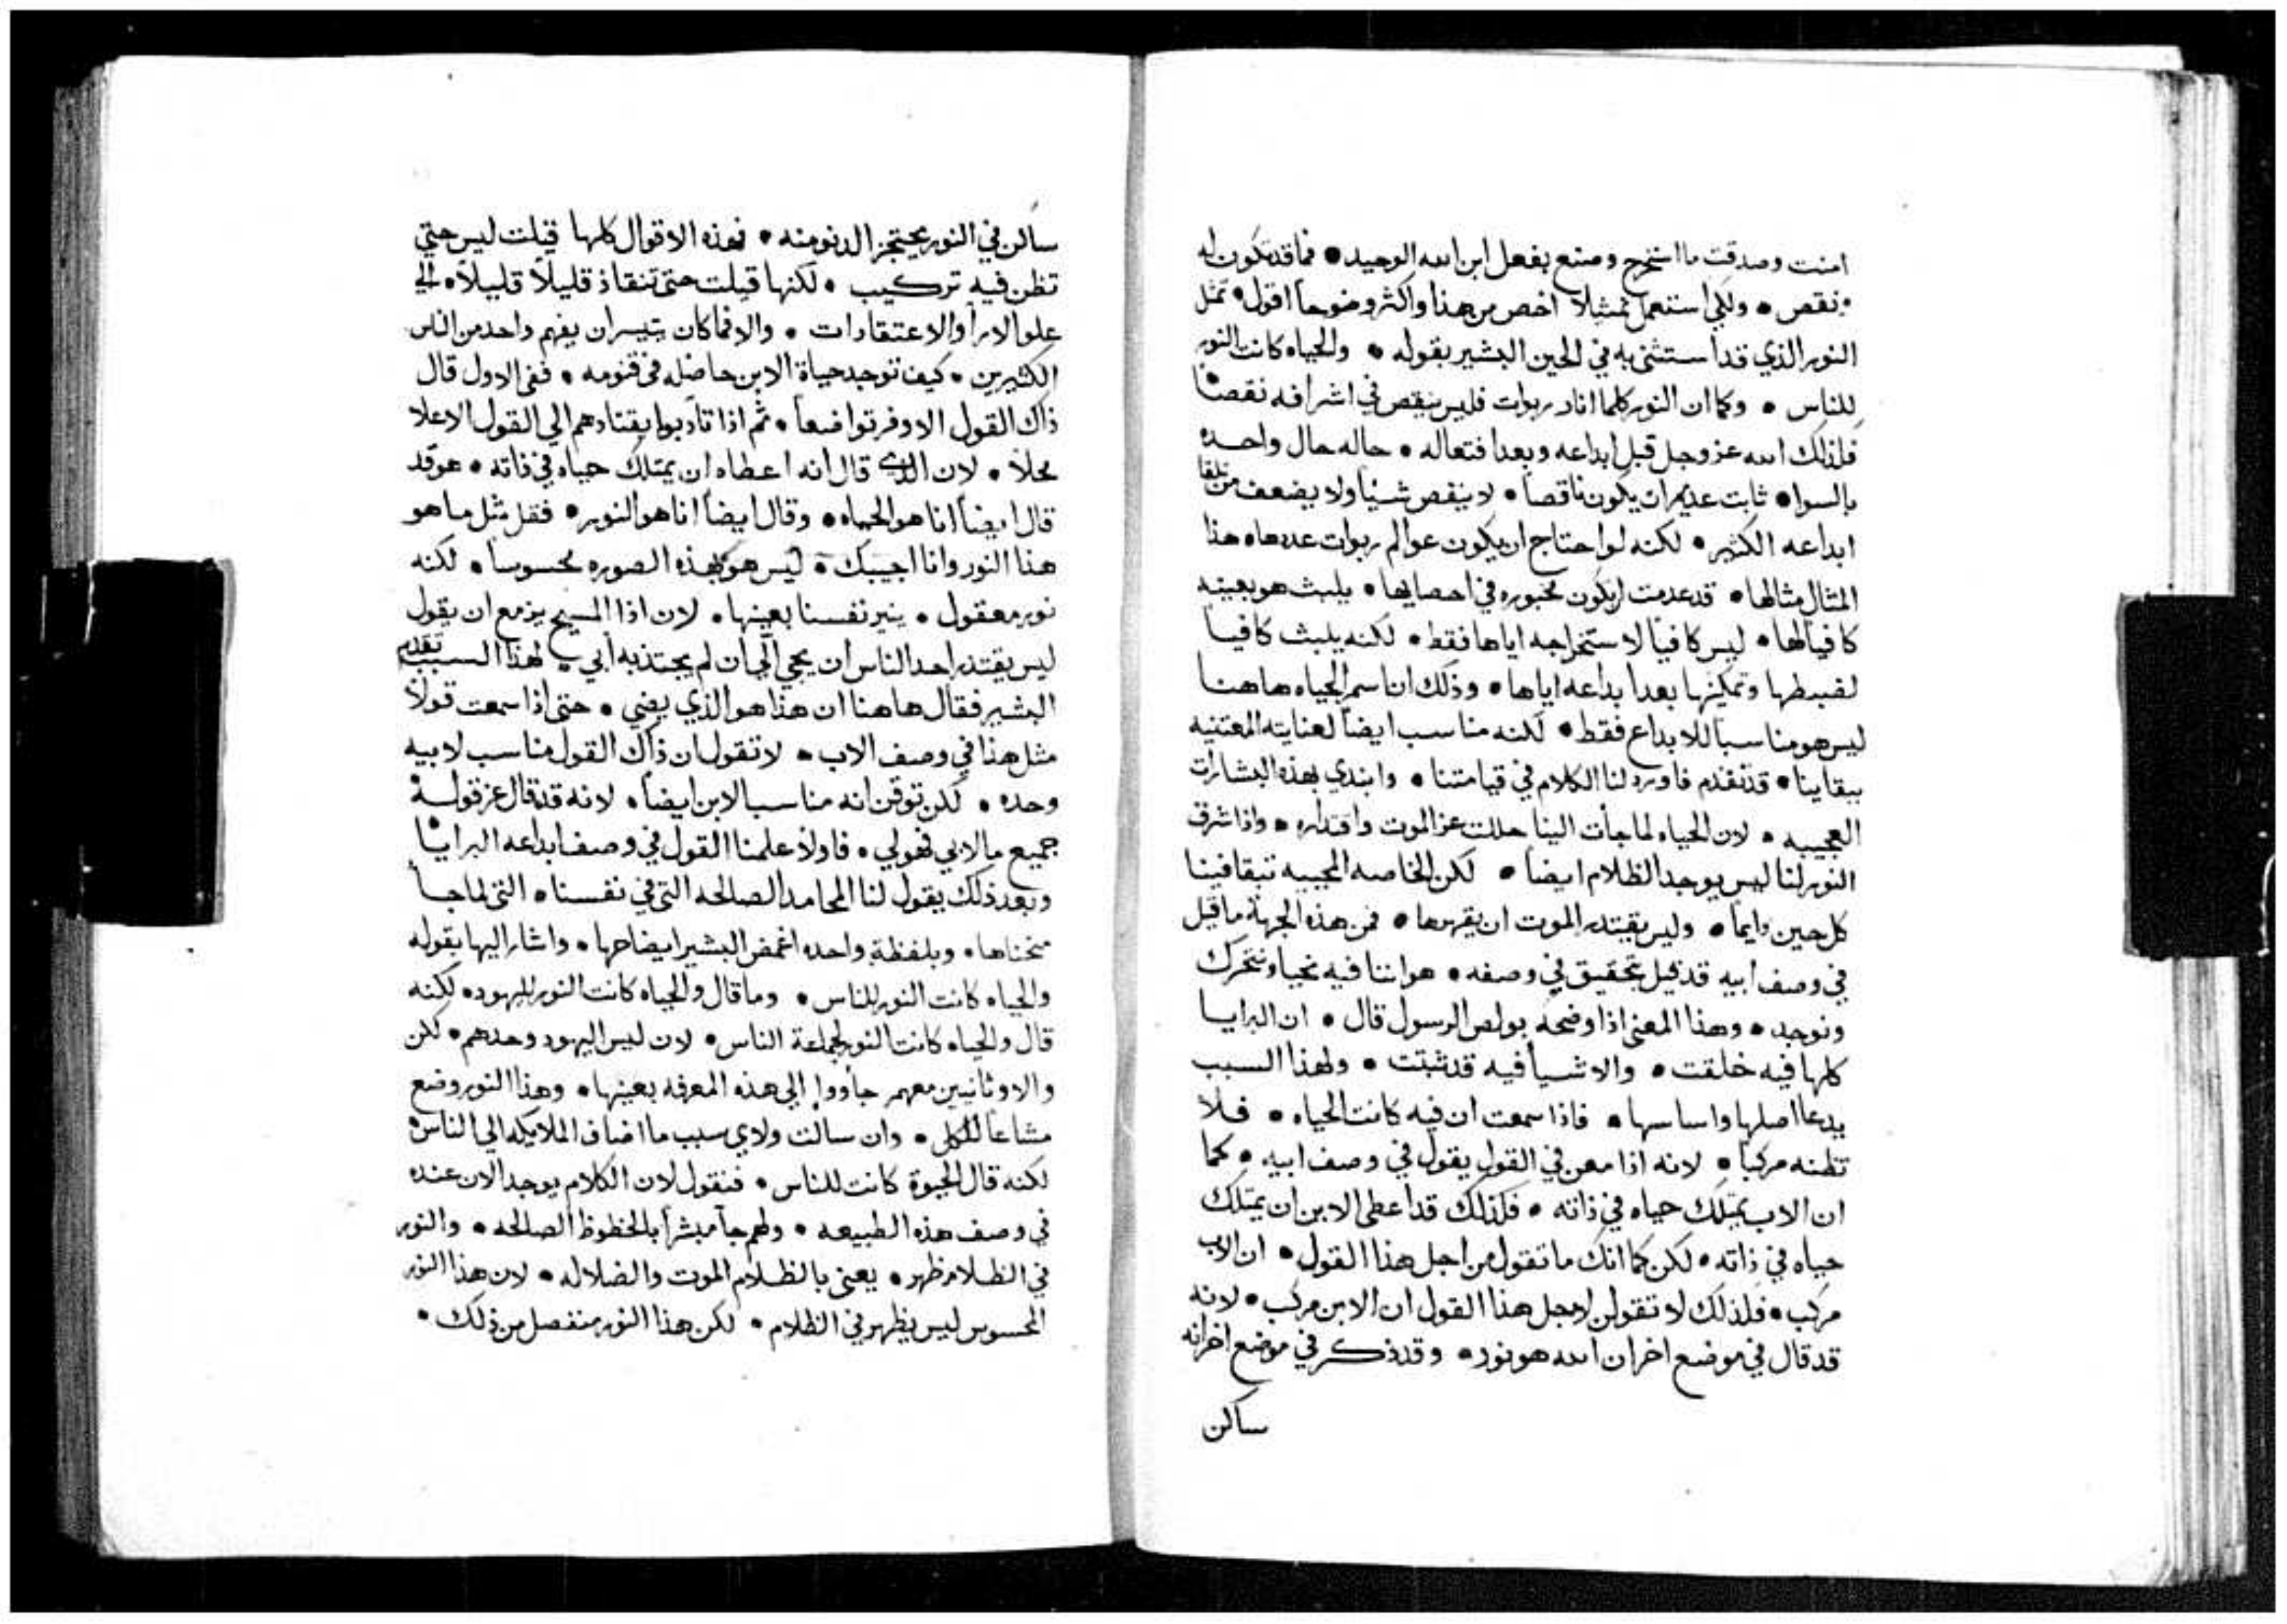 امنت وصدقت ما استخرج وصنع بفعل ابن الله الوحيد • فما قد تكون له
نقص • ولكي استعمل تمثيلاً اخص من هذا واكثر وضوحاً اقول • تمثل
النور الذي قد استثنى به في الحين البشير بقوله • والحياه كانت النور
للناس • وكما ان النور كلما انار ربوات فليس ينقص في اشراقه نقصاً
فلذلك الله عز وجل قبل ابداعه وبعد افتعاله • حاله حال واحده
بالسوا • ثابت عديم ان يكون ناقصاً • لا ينقص شيئاً ولا يضعف من تلقا
ابداعه الكثير • لكنه لو احتاج ان يكون عوالم ربوات عددها هذا
المثال مثالها • قد عدمت ان تكون مخبوره في احصايها • يلبث هو بعينه
كافياً لها • ليس كافياً لاستخراجه اياها فقط • لكنه يلبث كافياً
لضبطها وتمكينها بعد ابداعه اياها • وذلك ان اسم الحياه هاهنا
ليس هو مناسباً للابداع فقط • لكنه مناسب ايضاً لعنايته المعتنيه
ببقاينا • قد تقدم فاورد لنا الكلام في قيامتنا • وابتدي بهذه البشارات
العجيبه • لان الحياه لما جأت الينا حللت عز الموت واقتداره • واذا شرق
النور لنا ليس يوجد الظلام ايضاً • لكن الخاصه المحييه تبقا فينا
كل حين دايماً • وليس يقتدر الموت ان يقهرها • فمن هذه الجهة ما قيل
في وصف ابيه قد قيل بتحقيق في وصفه • هو اننا فيه نحيا ونتحرك
ونوجد • وهذا المعنى اذا وضحه بولص الرسول قال • ان البرايا
كلها فيه خلقت • والاشيأ فيه قد ثبتت • ولهذا السبب
يدعا اصلها واساسها • فاذا سمعت ان فيه كانت الحياه • فلا
تظنه مركباً • لانه اذا معن في القول يقول في وصف ابيه • كما
ان الاب يمتلك حياه في ذاته • فكذلك قد اعطى الابن ان يمتلك
حياه في ذاته • لكن كما انك ما تقول من اجل هذا القول • ان الاب
مركب • فلذلك لا تقولن لاجل هذا القول ان الابن مركب • لانه
قد قال في موضع اخر ان الله هو نور • وقد ذكر في موضع اخر انه
ساكن
ساكن في النور يحتجز الدنو منه • فهذه الاقوال كلها قيلت ليس حتي
تظن فيه تركيب • لكنها قيلت حتى تنقاذ قليلاً قليلاً • الي
علو الارأ والاعتقادات • والا فما كان يتيسر ان يفهم واحد من الناس
الكثيرين • كيف توجد حياة الابن حاصله في قنومه • ففي الاول قال
ذاك القول الاوفر تواضعاً • ثم اذا تادبوا يقتادهم الي القول الاعلا
محلاً • لان الدي قال انه اعطاه ان يمتلك حياه في ذاته • هو قد
قال ايضاً انا هو الحياه • وقال ايضاً انا هو النور • فقل مثل ما هو
هذا النور وانا اجيبك • ليس هو كهذه الصوره محسوساً • لكنه
نور معقول • ينير نفسنا بعينها • لان اذا المسيح يزمع ان يقول
ليس يقتدر احد الناس ان يجي الي ان لم يجتذبه ابي • لهذا السبب تقدم
البشير فقال هاهنا ان هذا هو الذي يضي • حتى اذا سمعت قولاً
مثل هذا في وصف الاب • لا تقول ان ذاك القول مناسب لابيه
وحده • لكن توقن انه مناسب الابن ايضاً • لانه قد قال عز قوله
جميع ما لابي فهو لي • فاولاً علمنا القول في وصف ابداعه البرايا
وبعد ذلك يقول لنا المحامد الصالحه التى في نفسنا • التى لما جا
منحناها • وبلفظة واحده اغمض البشير ايضاحها • واشار اليها بقوله
والحياه كانت النور للناس • وما قال والحياه كانت النور لليهود • لكنه
قال والحياه كانت النور لجماعة الناس • لان ليس اليهود وحدهم • لكن
والاوثانيين معهم جأووا الي هذه المعرفه بعينها • وهذا النور وضع
مشاعاً للكل • وان سالت ولاي سبب ما اضاف الملايكه الي الناس
لكنه قال الحيوة كانت للناس • فنقول لان الكلام يوجد الان عنده
في وصف هذه الطبيعه • ولهم جأ مبشراً بالحظوظ الصالحه • والنور
في الظلام ظهر • يعنى بالظلام الموت والضلاله • لان هذا النور
المحسوس ليس يظهر في الظلام • لكن هذا النور منفصل من ذلك •